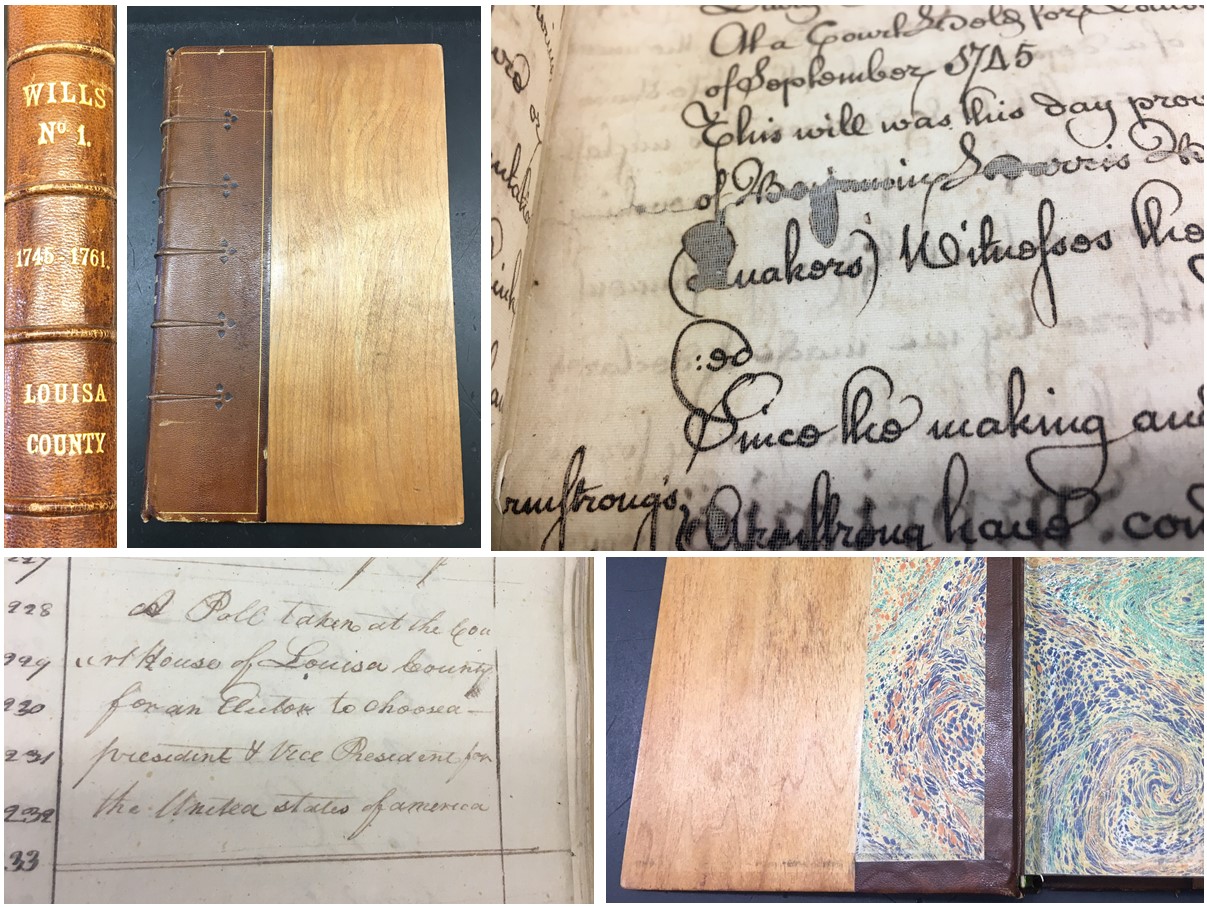 WILLS
Nº 1.
1745-1761.
LOUISA
COUNTY
At a Court held for Louisa
of September 1745
This will was this day prov
of Benjamin
(Quakers) Witnesses the
:ed
Since the making and
rmstrong's
Armstrong have con
928
A Poll taken at the Cou
929
urt House of Louisa County
930
for an Elector to choose a
931
president & Vice President for
932
the United states of america
33